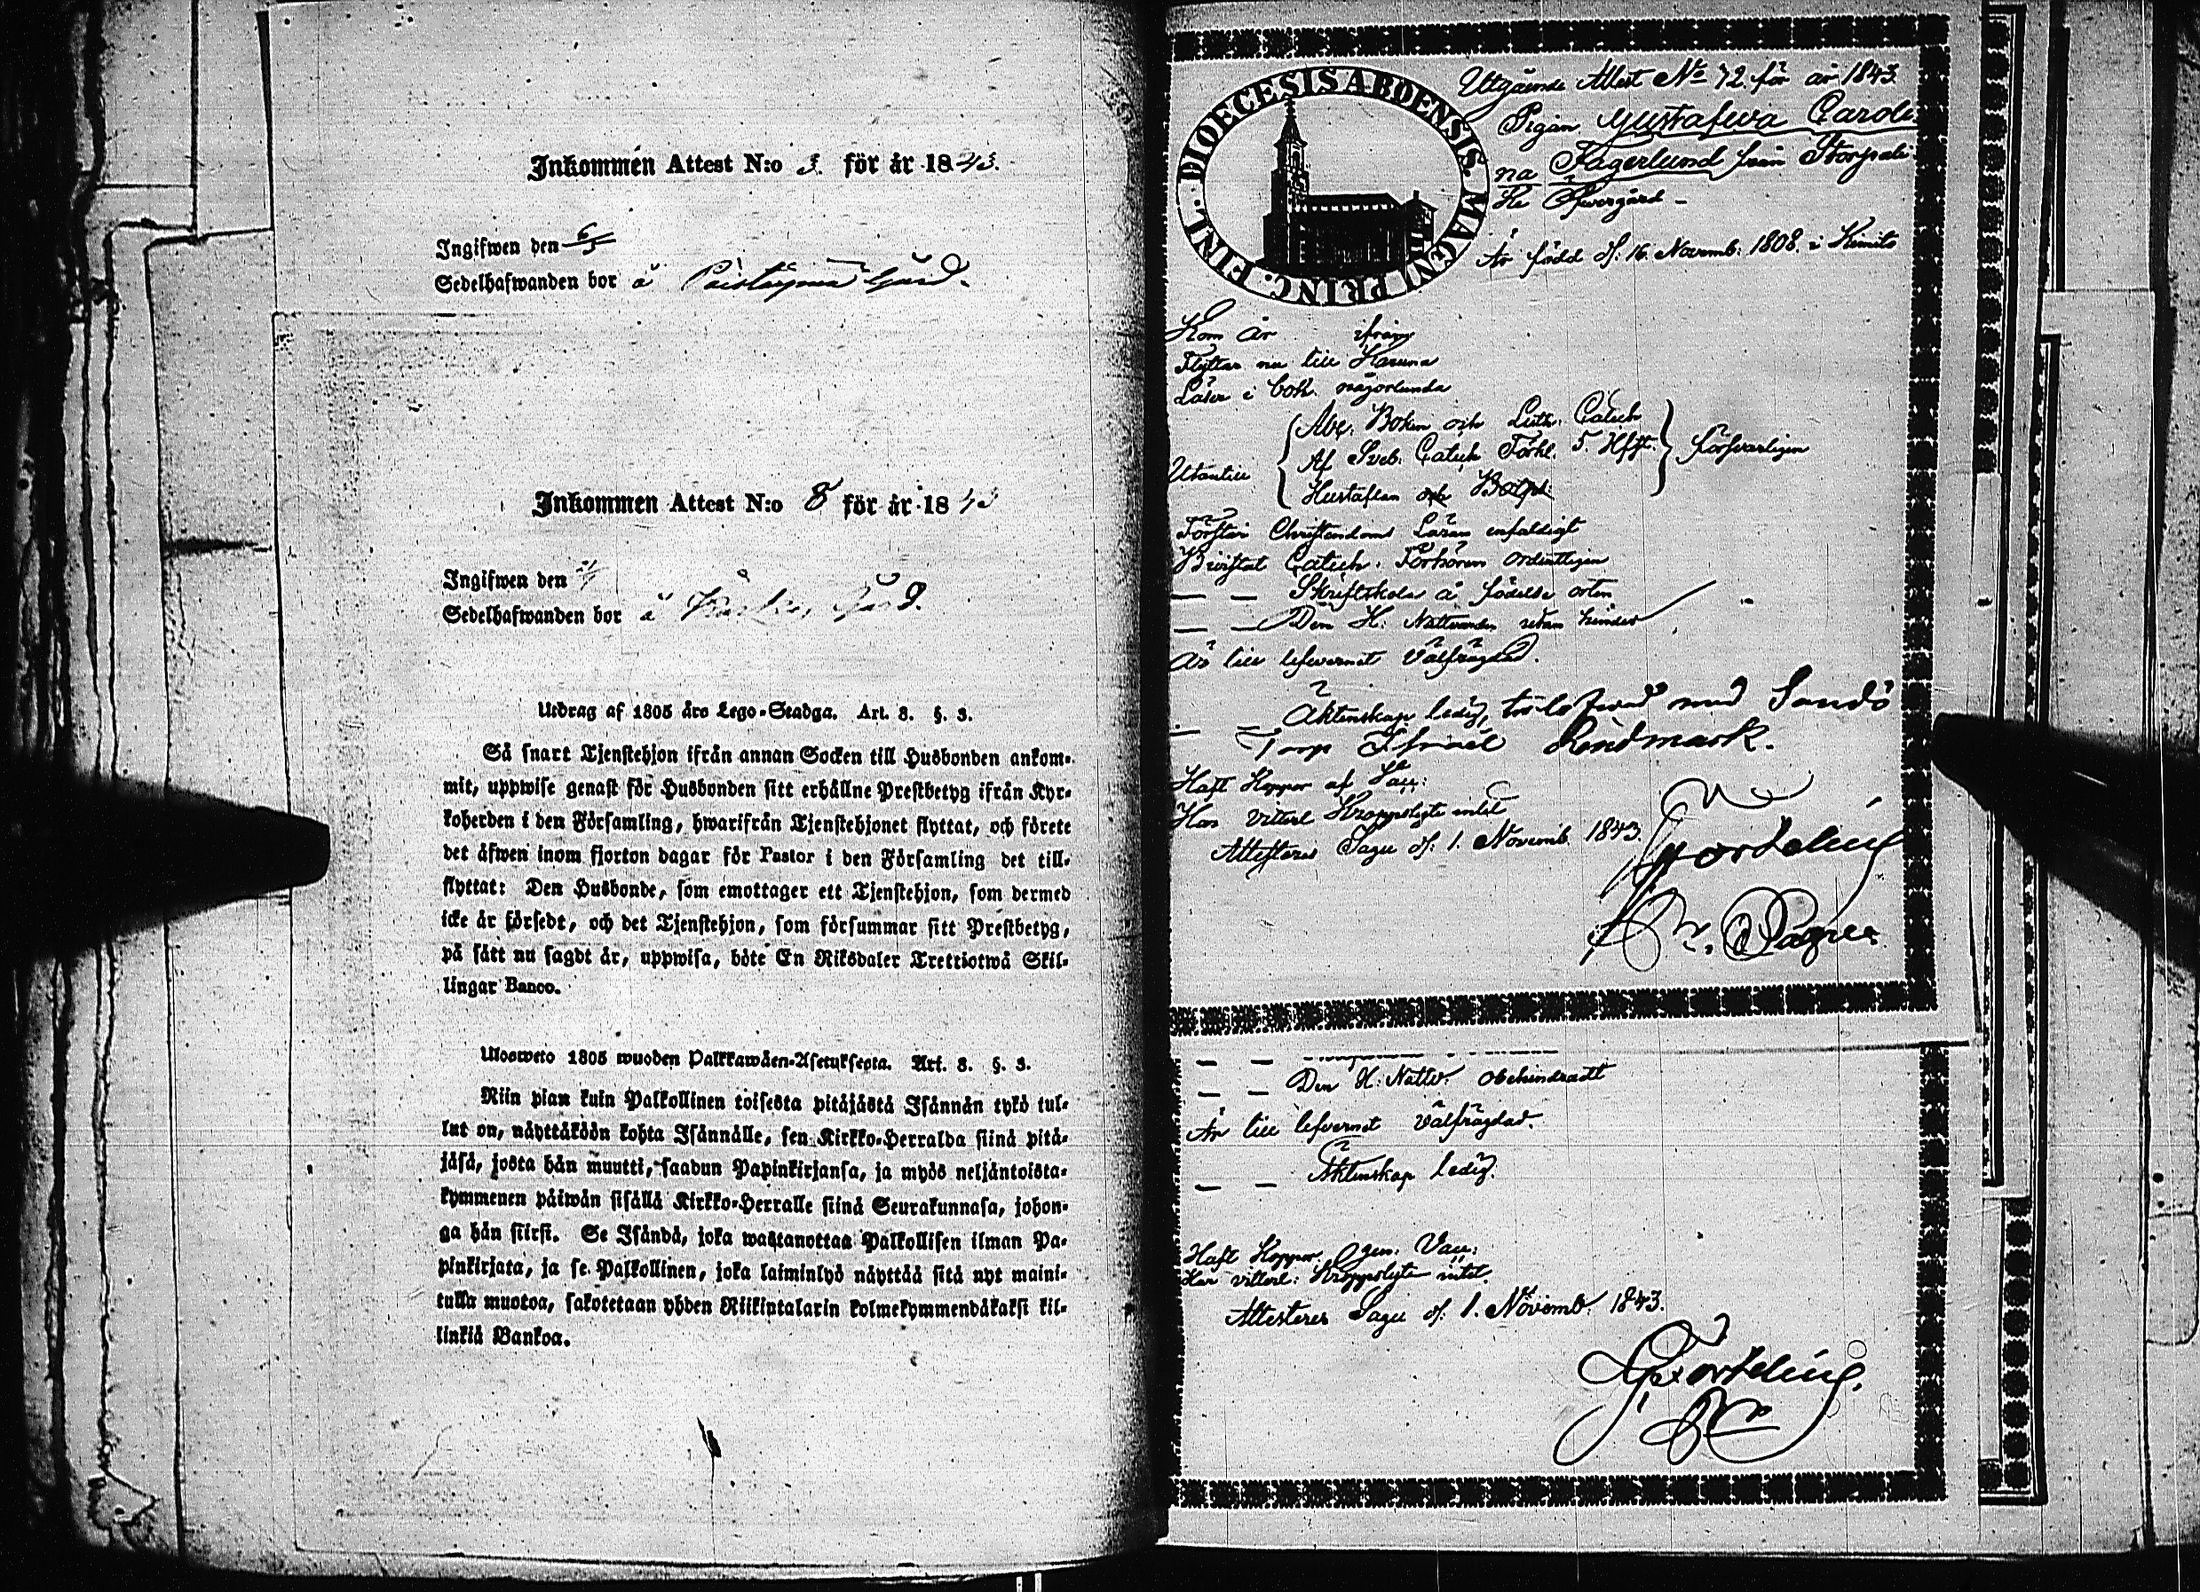 Inkommen Attest N:o 3. för år 1843.
Ingifwen den 6/5
Sedelhafwanden bor å Gård.
Inkommen Attest N:o 8 för år 1843
Ingifwen den
Sedelhafwanden bor å Gård.
Utdrag af 1805 års Lego-Stadga. Art. 8. §. 3.
Så snart Tjenstehjon ifrån annan Socken till Husbonden ankom-
mit, uppwise genast för Husbonden sitt erhållne Prestbetyg ifrån Kyr-
koherden i den Församling, hwarifrån Tjenstehjonet flyttat, och förete
det äfwen inom fjorton dagar för Pastor i den Församling det till-
flyttat: Den Husbonde, som emottager ett Tjenstehjon, som dermed
icke är försedt, och det Tjenstehjon, som försummar sitt Prestbetyg,
på sätt nu sagdt är, uppwisa, böte En Riksdaler Trettiotwå Skil-
lingar Banco.
Ulosweto 1805 wuoden Palkkawäen-Asetuksesta. Art. 8. §. 3.
Niin pian kuin Palkollinen toisesta pitäjästä Isännän tykö tul-
lut on, näyttäköön kohta Isännälle, sen Kirkko-Herralda siinä pitä-
jäsä, josta hän muutti, saadun Papinkirjansa, ja myös neljäntoista-
kymmenen päiwän sisällä Kirkko-Herralle siinä Seurakunnasa, johon-
ga hän siirsi. Se Isändä, joka wastanottaa Palkollisen ilman Pa-
pinkirjata, ja se Palkollinen, joka laiminlyö näyttää sitä nyt maini-
tulla muotoa, sakotetaan yhden Riikintalarin kolmekymmendäkaksi kil-
linkiä Bankoa.
DIOECESIS ABOENSIS. MAGNI PRINC. FINL.
Utgående Attest No 72. för år 1843.
Pigan Gustafwa Caroli
na Fagerlund från Storpali
He Öfwergård –
Är född d: 16 Novemb: 1808. i Kimito
Kom år ifrån
Flyttar nu till Karuna
Läser i bok någorlunda
Abc. Boken och Luth. Catech
Utantill Af Sveb. Catech Förkl. 5. Hfst. försvarligen
Hustaflan och
Förstår Christendoms Läran enfaldigt
Bivistat Catech. Förhören ordentligen
— — Skriftskolan å födelse orten
— — Den H: Nattvarden utan hinder
Är till lefvernet Välfrägdad.
— — Äktenskap ledig, trolofwad med Sandö
Torp Lindmark.
Haft Koppor af Vacc:
Har vitterl Kroppslyte intet
Attesteras Sagu d: 1. Novemb. 1843.
— — Den H: Nattv: obehindradt
Är till lefvernet Välfrägdad.
— — Äktenskap ledig.
Haft Koppor. gen. Vacc:
Har vitterl: Kroppslyte intet.
Attesteras Sagu d: 1. Novemb: 1843.